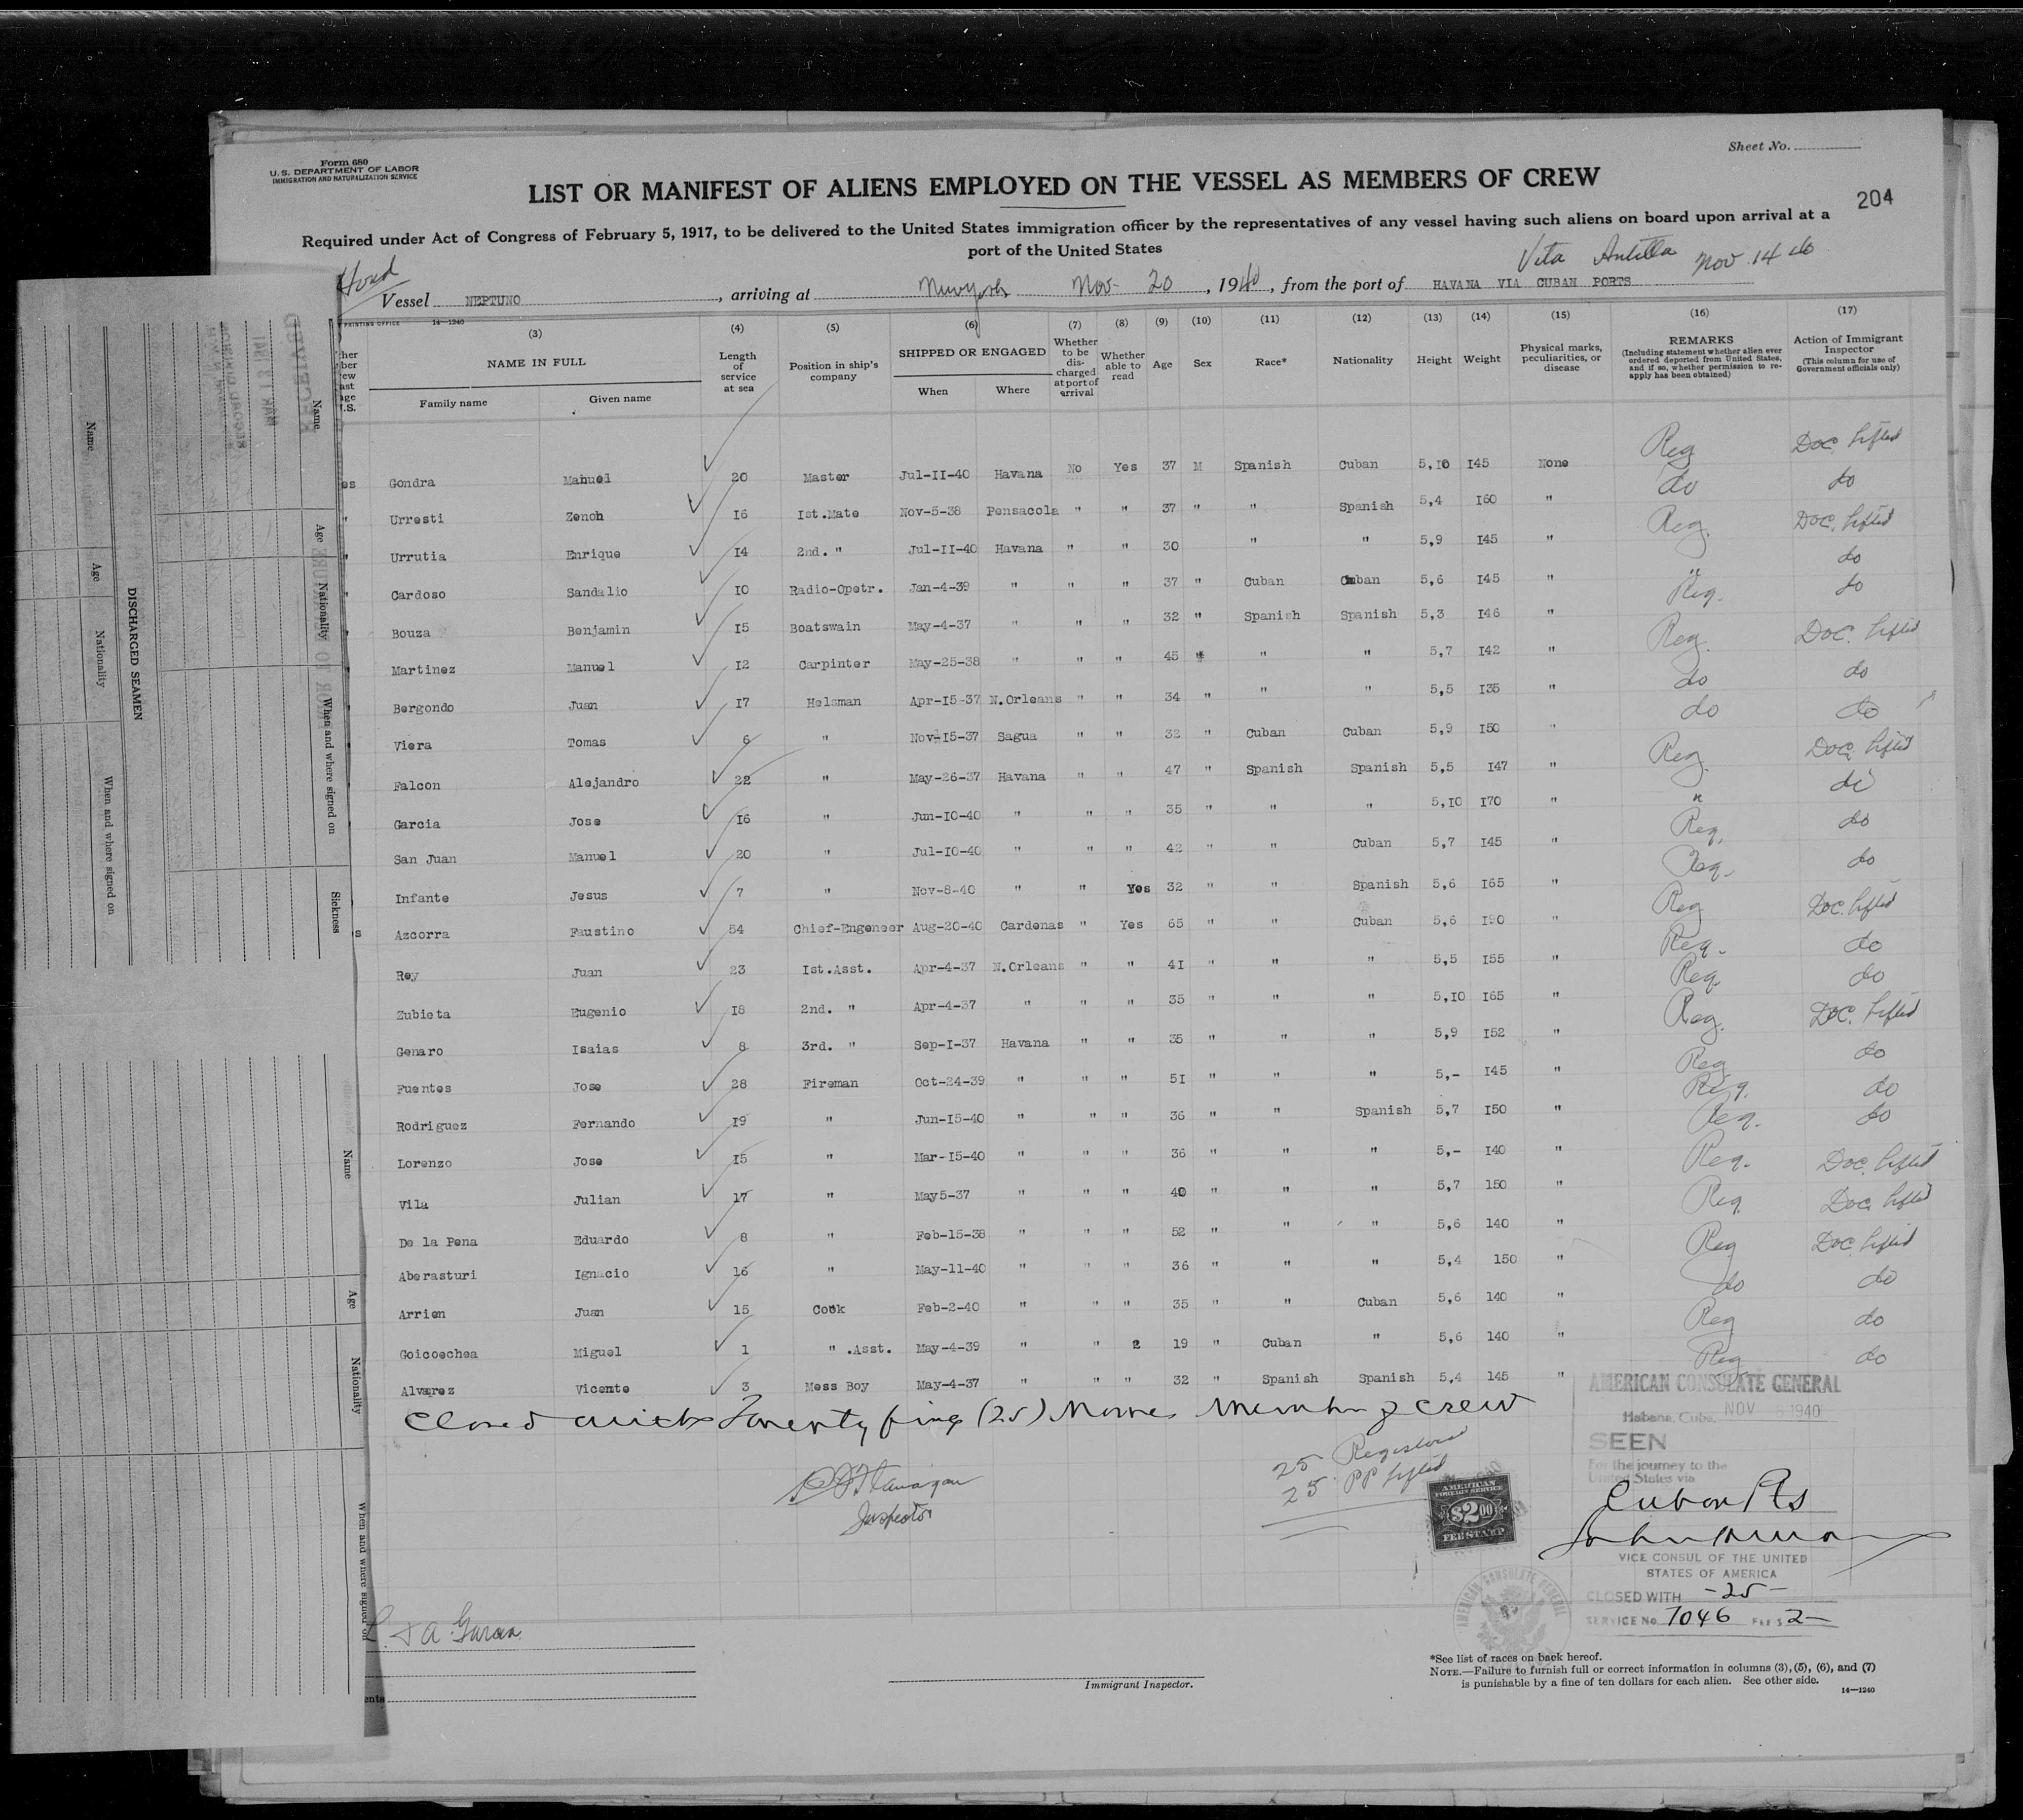 Form 680
U. S. DEPARTMENT OF LABOR
IMMIGRATION AND NATURALIZATION SERVICE
Sheet No.
LIST OR MANIFEST OF ALIENS EMPLOYED ON THE VESSEL AS MEMBERS OF CREW
204
Required under Act of Congress of February 5, 1917, to be delivered to the United States immigration officer by the representatives of any vessel having such aliens on board upon arrival at a
port of the United States
Vita Antilla Nov 14 40
Vessel NEPTUNO, arriving at New York Nov- 20, 1940, from the port of HAVANA VIA CUBAN PORTS
PRINTING OFFICE 14—1240
(3) (4) (5) (6) (7) (8) (9) (10) (11) (12) (13) (14) (15) (16) (17)
NAME IN FULL
Family name
Given name
Length of service at sea
Position in ship's company
SHIPPED OR ENGAGED
When
Where
Whether to be discharged at port of arrival
Whether able to read
Age
Sex
Race*
Nationality
Height
Weight
Physical marks, peculiarities, or disease
REMARKS
(Including statement whether alien ever ordered deported from United States, and if so, whether permission to reapply has been obtained)
Action of Immigrant Inspector
(This column for use of Government officials only)
Gondra Manuel 20 Master Jul-II-40 Havana No Yes 37 M Spanish Cuban 5,10 145 None Reg Doc. lifted
Urresti Zenon 16 Ist.Mate Nov-5-38 Pensacola " " 37 " " Spanish 5,4 160 " do do
Urrutia Enrique 14 2nd. " Jul-II-40 Havana " " 30 " " 5,9 145 " Reg. Doc. lifted
Cardoso Sandalio 10 Radio-Opetr. Jan-4-39 " " " 37 " Cuban Cuban 5,6 145 " " do
Bouza Benjamin 15 Boatswain May-4-37 " " " 32 " Spanish Spanish 5,3 146 " Reg. do
Martinez Manuel 12 Carpinter May-25-38 " " " 45 " " " 5,7 142 " Reg. Doc. lifted
Bergondo Juan 17 Helsman Apr-15-37 N.Orleans " " 34 " " " 5,5 135 " do do
Viera Tomas 6 " Nov-15-37 Sagua " " 32 " Cuban Cuban 5,9 150 " do do
Falcon Alejandro 22 " May-26-37 Havana " " 47 " Spanish Spanish 5,5 147 " Reg. Doc. lifted
Garcia Jose 16 " Jun-10-40 " " " 35 " " " 5,10 170 " " do
San Juan Manuel 20 " Jul-10-40 " " " 42 " " Cuban 5,7 145 " Reg. do
Infante Jesus 7 " Nov-8-40 " " Yes 32 " " Spanish 5,6 165 " Reg. do
Azcorra Faustino 54 Chief-Engeneer Aug-20-40 Cardenas " Yes 65 " " Cuban 5,6 190 " Reg Doc. lifted
Rey Juan 23 Ist.Asst. Apr-4-37 N.Orleans " " 41 " " " 5,5 155 " Reg. do
Zubieta Eugenio 18 2nd. " Apr-4-37 " " " 35 " " " 5,10 165 " Reg. do
Genaro Isaias 8 3rd. " Sep-I-37 Havana " " 35 " " " 5,9 152 " Reg. Doc. lifted
Fuentes Jose 28 Fireman Oct-24-39 " " " 51 " " " 5,- 145 " Reg do
Rodriguez Fernando 19 " Jun-15-40 " " " 36 " " Spanish 5,7 150 " Reg. do
Lorenzo Jose 15 " Mar-15-40 " " " 36 " " " 5,- 140 " Reg. do
Vila Julian 17 " May5-37 " " " 40 " " " 5,7 150 " Reg. Doc. lifted
De la Pena Eduardo 8 " Feb-15-38 " " " 52 " " " 5,6 140 " Reg. Doc. lifted
Aberasturi Ignacio 16 " May-11-40 " " " 36 " " " 5,4 150 " Reg Doc. lifted
Arrien Juan 15 Cook Feb-2-40 " " " 35 " " Cuban 5,6 140 " do do
Goicoechea Miguel 1 " .Asst. May-4-39 " " 2 19 " Cuban " 5,6 140 " Reg do
Alvarez Vicente 3 Mess Boy May-4-37 " " " 32 " Spanish Spanish 5,4 145 " Reg do
Closed with Twenty five (25) Names Members of crew
25 Registered
25 PP lifted
Inspector
AMERICAN FOREIGN SERVICE
$2.00
FEE STAMP
AMERICAN CONSULATE GENERAL
Habana, Cuba, NOV 8 1940
SEEN
For the journey to the
United States via
Cuban Pts
VICE CONSUL OF THE UNITED
STATES OF AMERICA
CLOSED WITH -25-
SERVICE No. 7046 FEE $ 2-
AMERICAN CONSULATE GENERAL
Immigrant Inspector.
*See list of races on back hereof.
NOTE.—Failure to furnish full or correct information in columns (3), (5), (6), and (7)
is punishable by a fine of ten dollars for each alien. See other side.
14—1240
DISCHARGED SEAMEN
Name
Age
Nationality
When and where signed on
Name
Age
Nationality
When and where signed on
Sickness
Name
Age
Nationality
When and where signed on
RECEIVED
MAR 13 1941